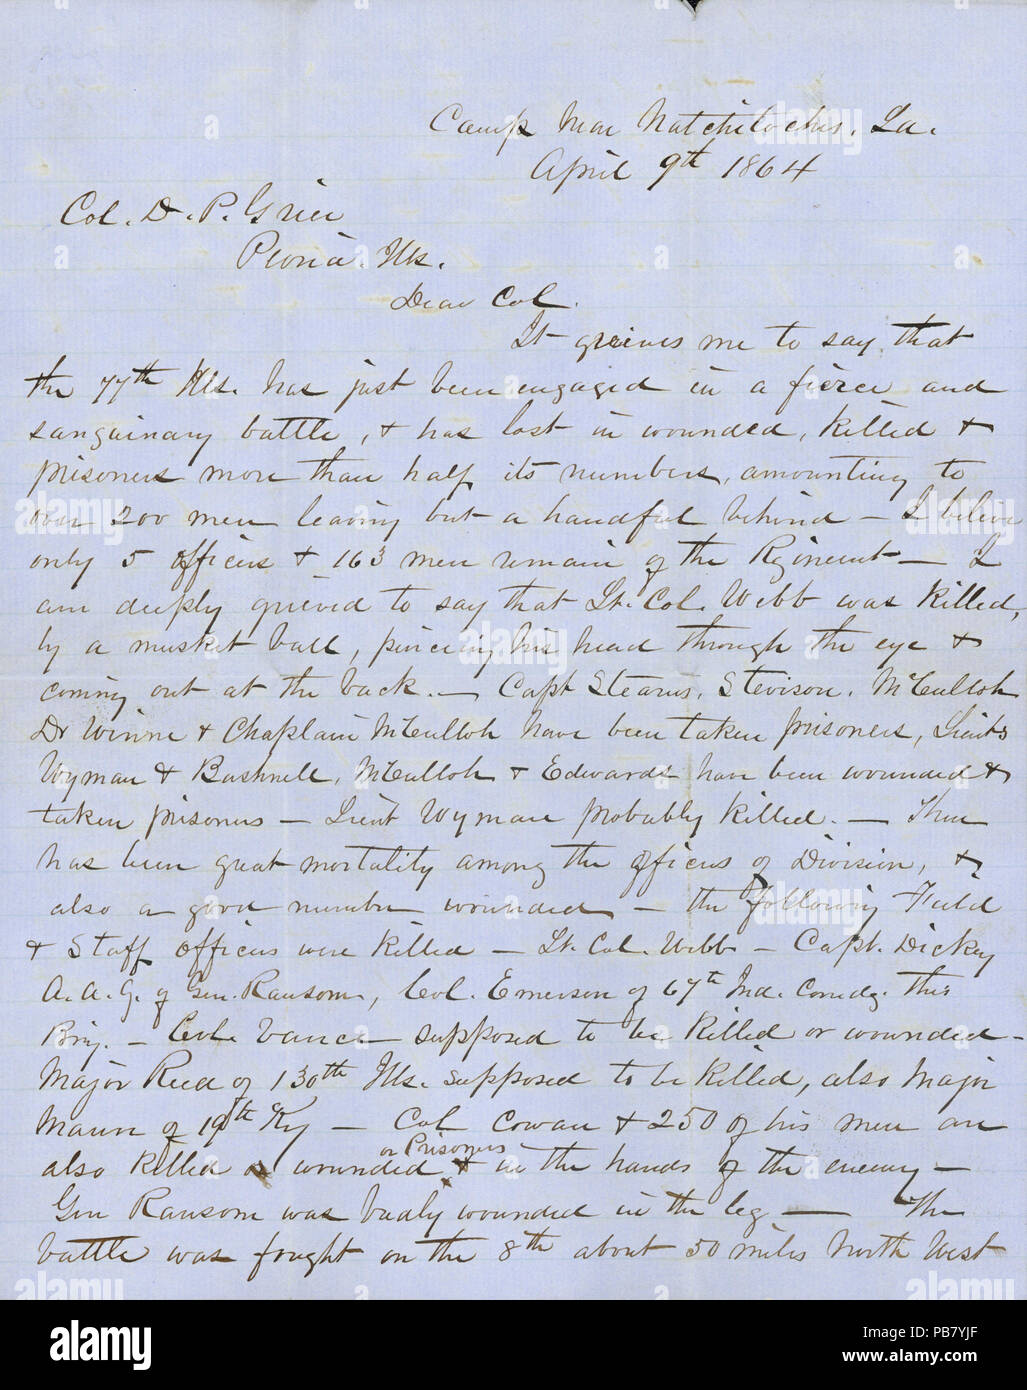 Camp Near Natchitoches, La.
April 9th 1864
Col. D. P. Grier
Peoria Ills.
Dear Col.
It grieves me to say that
the 77th Ills. has just been engaged in a fierce and
sanguinary battle, & has lost in wounded, killed &
prisoners more than half its numbers, amounting to
over 200 men leaving but a handful behind — I believe
only 5 officers & 163 men remain of the Regiment — I
am deeply grieved to say that Lt. Col. Webb was killed,
by a musket ball, piercing his head through the eye &
coming out at the back. — Capt Stearns, Stevison, McCulloh
Dr Winne & Chaplain McCulloh have been taken prisoners, Lieuts
Wyman & Bushnell, McCulloh & Edwards have been wounded &
taken prisoners — Lieut Wyman probably killed. — There
has been great mortality among the officers of Division, &
also a good number wounded — the following Field
& Staff officers were killed — Lt. Col. Webb — Capt. Dickey
A. A. G. of Gen. Ransom, Col. Emerson of 67th Ind. Comdg. this
Brig. — Col. Vance supposed to be killed or wounded —
Major Reed of 130th Ills. supposed to be killed, also Major
Mann of 19th Ky — Col Cowan & 250 of his men are
or Prisoners
also killed wounded & in the hands of the enemy —
Gen Ransom was badly wounded in the leg — The
battle was fought on the 8th about 50 miles North West
alamy
a
alamy stock photo
PB7YJF
www.alamy.com